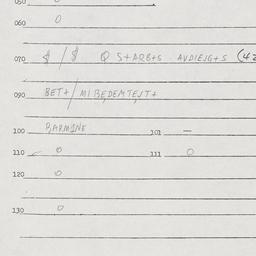 050
060 0
070 $ / $ Q S+ARE+S AUDIEJG+S (42
090 BET+/MIBEDEMTEJT+
100 BARMINE 101 —
110 0 111 0
120 0
130 0